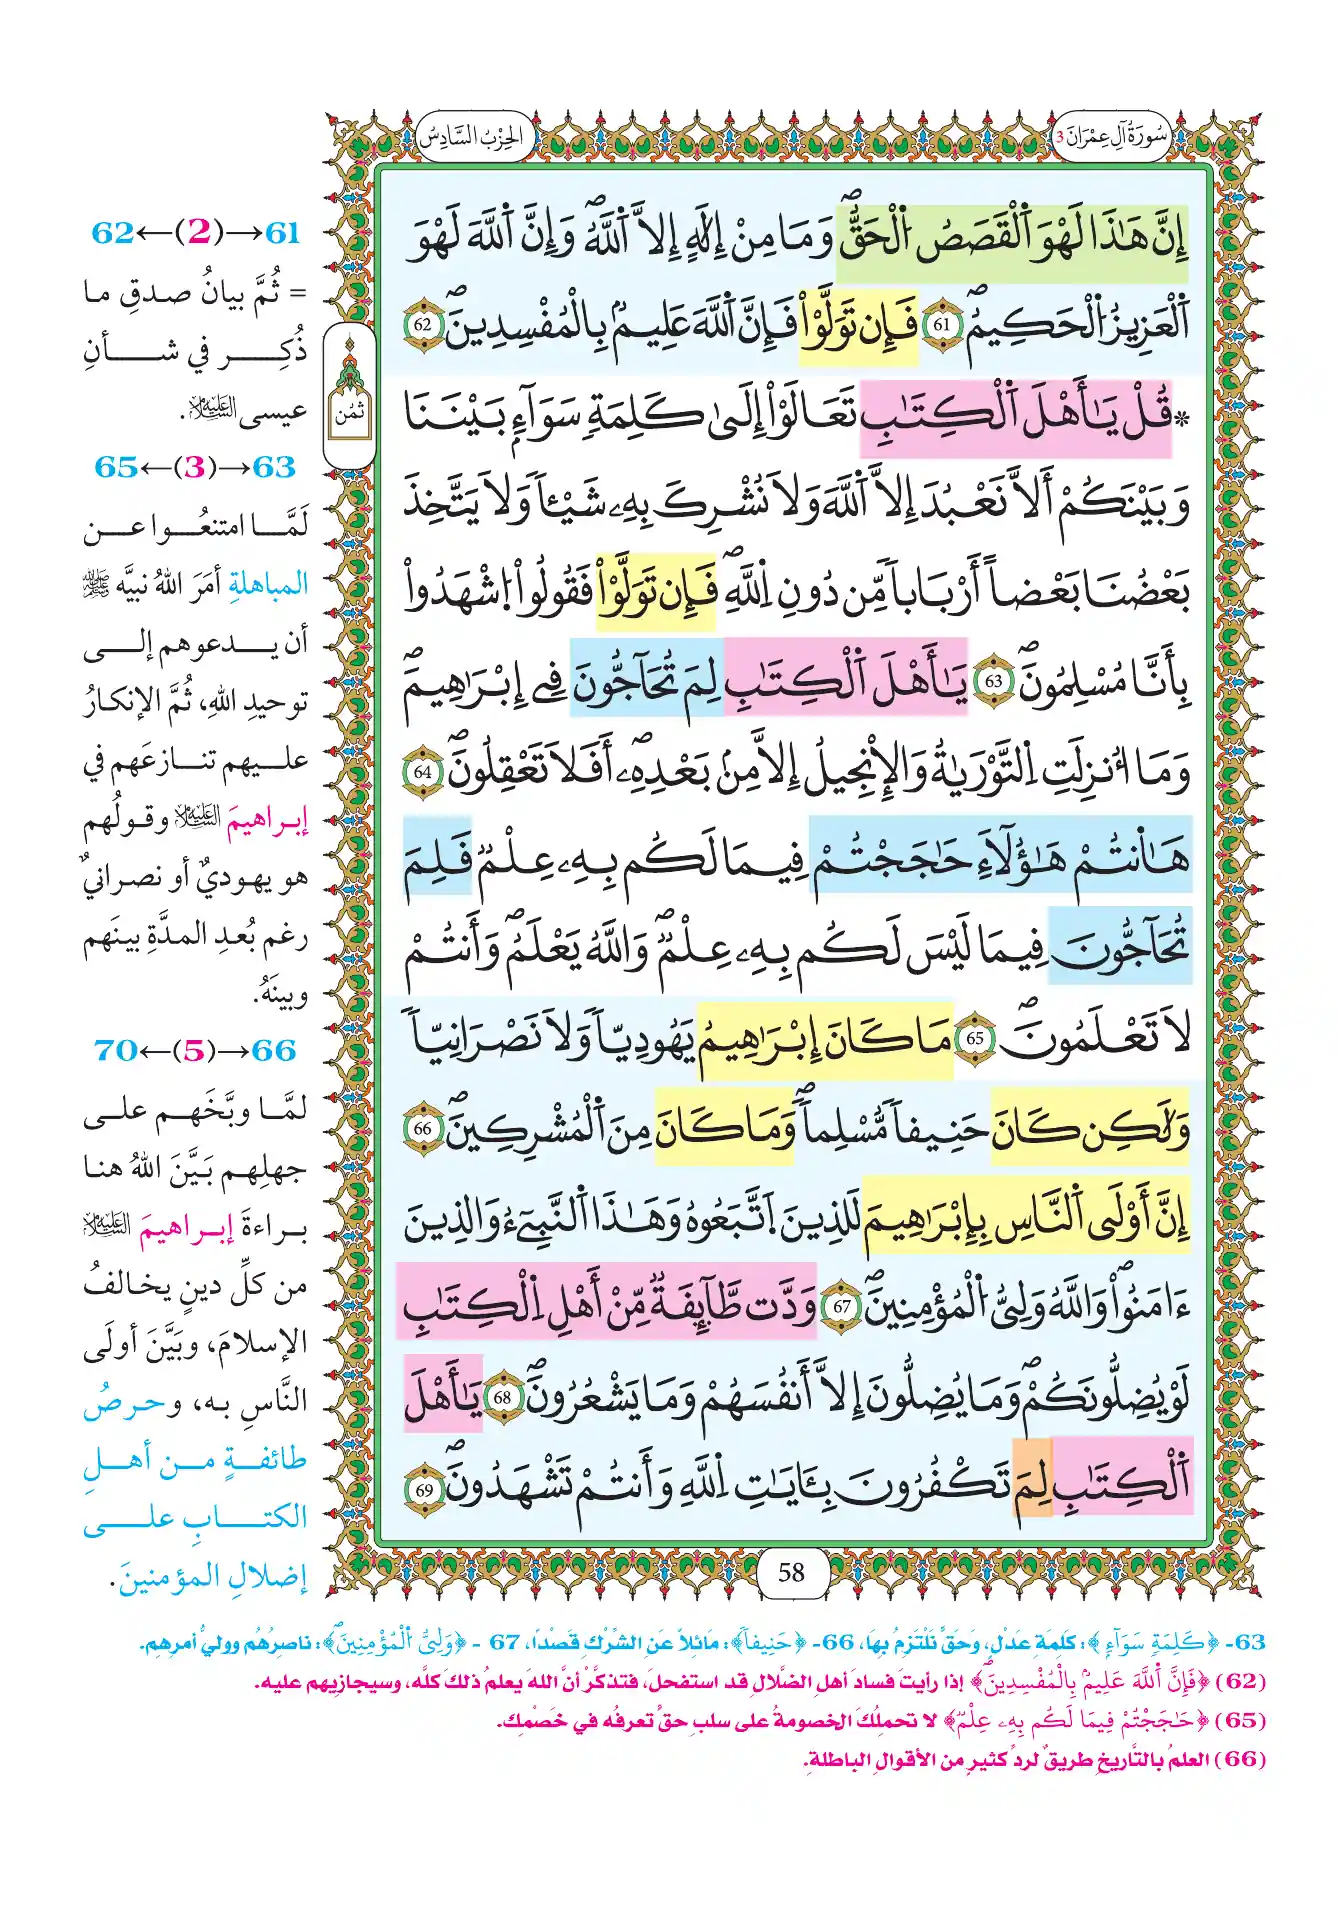 سُورَةُ آلِ عِمْرَانَ 3
الحِزْبُ السَّادِسُ
إِنَّ هَٰذَا لَهُوَ اَ۬لْقَصَصُ اُ۬لْحَقُّۖ وَمَا مِنْ إِلَٰهٍ إِلَّا اَ۬للَّهُۖ وَإِنَّ اَ۬للَّهَ لَهُوَ
اَ۬لْعَزِيزُ اُ۬لْحَكِيمُۖ 61 فَإِن تَوَلَّوْاْ فَإِنَّ اَ۬للَّهَ عَلِيمُۢ بِالْمُفْسِدِينَۖ 62
*قُلْ يَٰأَهْلَ اَ۬لْكِتَٰبِ تَعَالَوْاْ إِلَىٰ كَلِمَةٖ سَوَآءِۢ بَيْنَنَا
وَبَيْنَكُمْ أَلَّا نَعْبُدَ إِلَّا اَ۬للَّهَ وَلَا نُشْرِكَ بِهِۦ شَيْـٔاٗ وَلَا يَتَّخِذَ
بَعْضُنَا بَعْضاً أَرْبَاباٗ مِّن دُونِ اِ۬للَّهِۖ فَإِن تَوَلَّوْاْ فَقُولُواْ اُ۪شْهَدُواْ
بِأَنَّا مُسْلِمُونَۖ 63 يَٰأَهْلَ اَ۬لْكِتَٰبِ لِمَ تُحَآجُّونَ فِےٓ إِبْرَٰهِيمَۖ
وَمَآ أُنزِلَتِ اِ۬لتَّوْرَيٰةُ وَالِانجِيلُ إِلَّا مِنۢ بَعْدِهِۦٓۖ أَفَلَا تَعْقِلُونَۖ 64
هَٰٓانتُمْ هَٰٓؤُلَآءِ حَٰجَجْتُمْ فِيمَا لَكُم بِهِۦ عِلْمٞ فَلِمَ
تُحَآجُّونَ فِيمَا لَيْسَ لَكُم بِهِۦ عِلْمٞۖ وَاللَّهُ يَعْلَمُۖ وَأَنتُمْ
لَا تَعْلَمُونَۖ 65 مَا كَانَ إِبْرَٰهِيمُ يَهُودِيّاٗ وَلَا نَصْرَانِيّاٗ
وَلَٰكِن كَانَ حَنِيفاٗ مُّسْلِماٗۖ وَمَا كَانَ مِنَ اَ۬لْمُشْرِكِينَۖ 66
إِنَّ أَوْلَى اَ۬لنَّاسِ بِإِبْرَٰهِيمَ لَلذِينَ اَ۪تَّبَعُوهُ وَهَٰذَا اَ۬لنَّبِےٓءُ وَالذِينَ
ءَامَنُواْۖ وَاللَّهُ وَلِيُّ اُ۬لْمُؤْمِنِينَۖ 67 وَدَّت طَّآئِفَةٞ مِّنْ أَهْلِ اِ۬لْكِتَٰبِ
لَوْ يُضِلُّونَكُمْۖ وَمَا يُضِلُّونَ إِلَّآ أَنفُسَهُمْ وَمَا يَشْعُرُونَۖ 68 يَٰأَهْلَ
اَ۬لْكِتَٰبِ لِمَ تَكْفُرُونَ بِـَٔايَٰتِ اِ۬للَّهِ وَأَنتُمْ تَشْهَدُونَۖ 69
58
ثمُن
61←(2)→62
= ثُمَّ بيانُ صدقِ ما
ذُكِر في شأنِ
عيسى عليه السلام.
63←(3)→65
لَمَّا امتنعُوا عن
المباهلةِ أمَرَ اللهُ نبيَّه ﷺ
أن يدعوهم إلى
توحيدِ اللهِ، ثُمَّ الإنكارُ
عليهم تنازعَهم في
إبراهيمَ عليه السلام وقولُهم
هو يهوديٌ أو نصرانيٌ
رغم بُعدِ المدَّةِ بينَهم
وبينَهُ.
66←(5)→70
لمَّا وبَّخَهم على
جهلِهم بَيَّنَ اللهُ هنا
براءةَ إبراهيمَ عليه السلام
من كلِّ دينٍ يخالفُ
الإسلامَ، وبَيَّنَ أولَى
النَّاسِ به، وحرصُ
طائفةٍ من أهلِ
الكتابِ على
إضلالِ المؤمنينَ.
63- ﴿كَلِمَةٖ سَوَآءِۢ﴾: كَلِمةِ عَدْلٍ، وَحَقٍّ نَلْتَزِمُ بِهَا، 66- ﴿حَنِيفاٗ﴾: مَائِلاً عَنِ الشِّرْكِ قَصْدًا، 67 - ﴿وَلِيُّ اُ۬لْمُؤْمِنِينَۖ﴾: نَاصِرُهُم وَوليُّ أمرِهِم.
(62) ﴿فَإِنَّ اَ۬للَّهَ عَلِيمُۢ بِالْمُفْسِدِينَۖ﴾ إذا رأيتَ فسادَ أهلِ الضَّلالِ قد استفحلَ، فتذكَّرْ أنَّ اللهَ يعلمُ ذلك كلَّه، وسيجازِيهم عليه.
(65) ﴿حَٰجَجْتُمْ فِيمَا لَكُم بِهِۦ عِلْمٞ﴾ لا تحملْكَ الخصومةُ على سلبِ حقٍّ تعرفُه في خَصْمِك.
(66) العلمُ بالتَّاريخِ طريقٌ لردِّ كثيرٍ من الأقوالِ الباطلةِ.